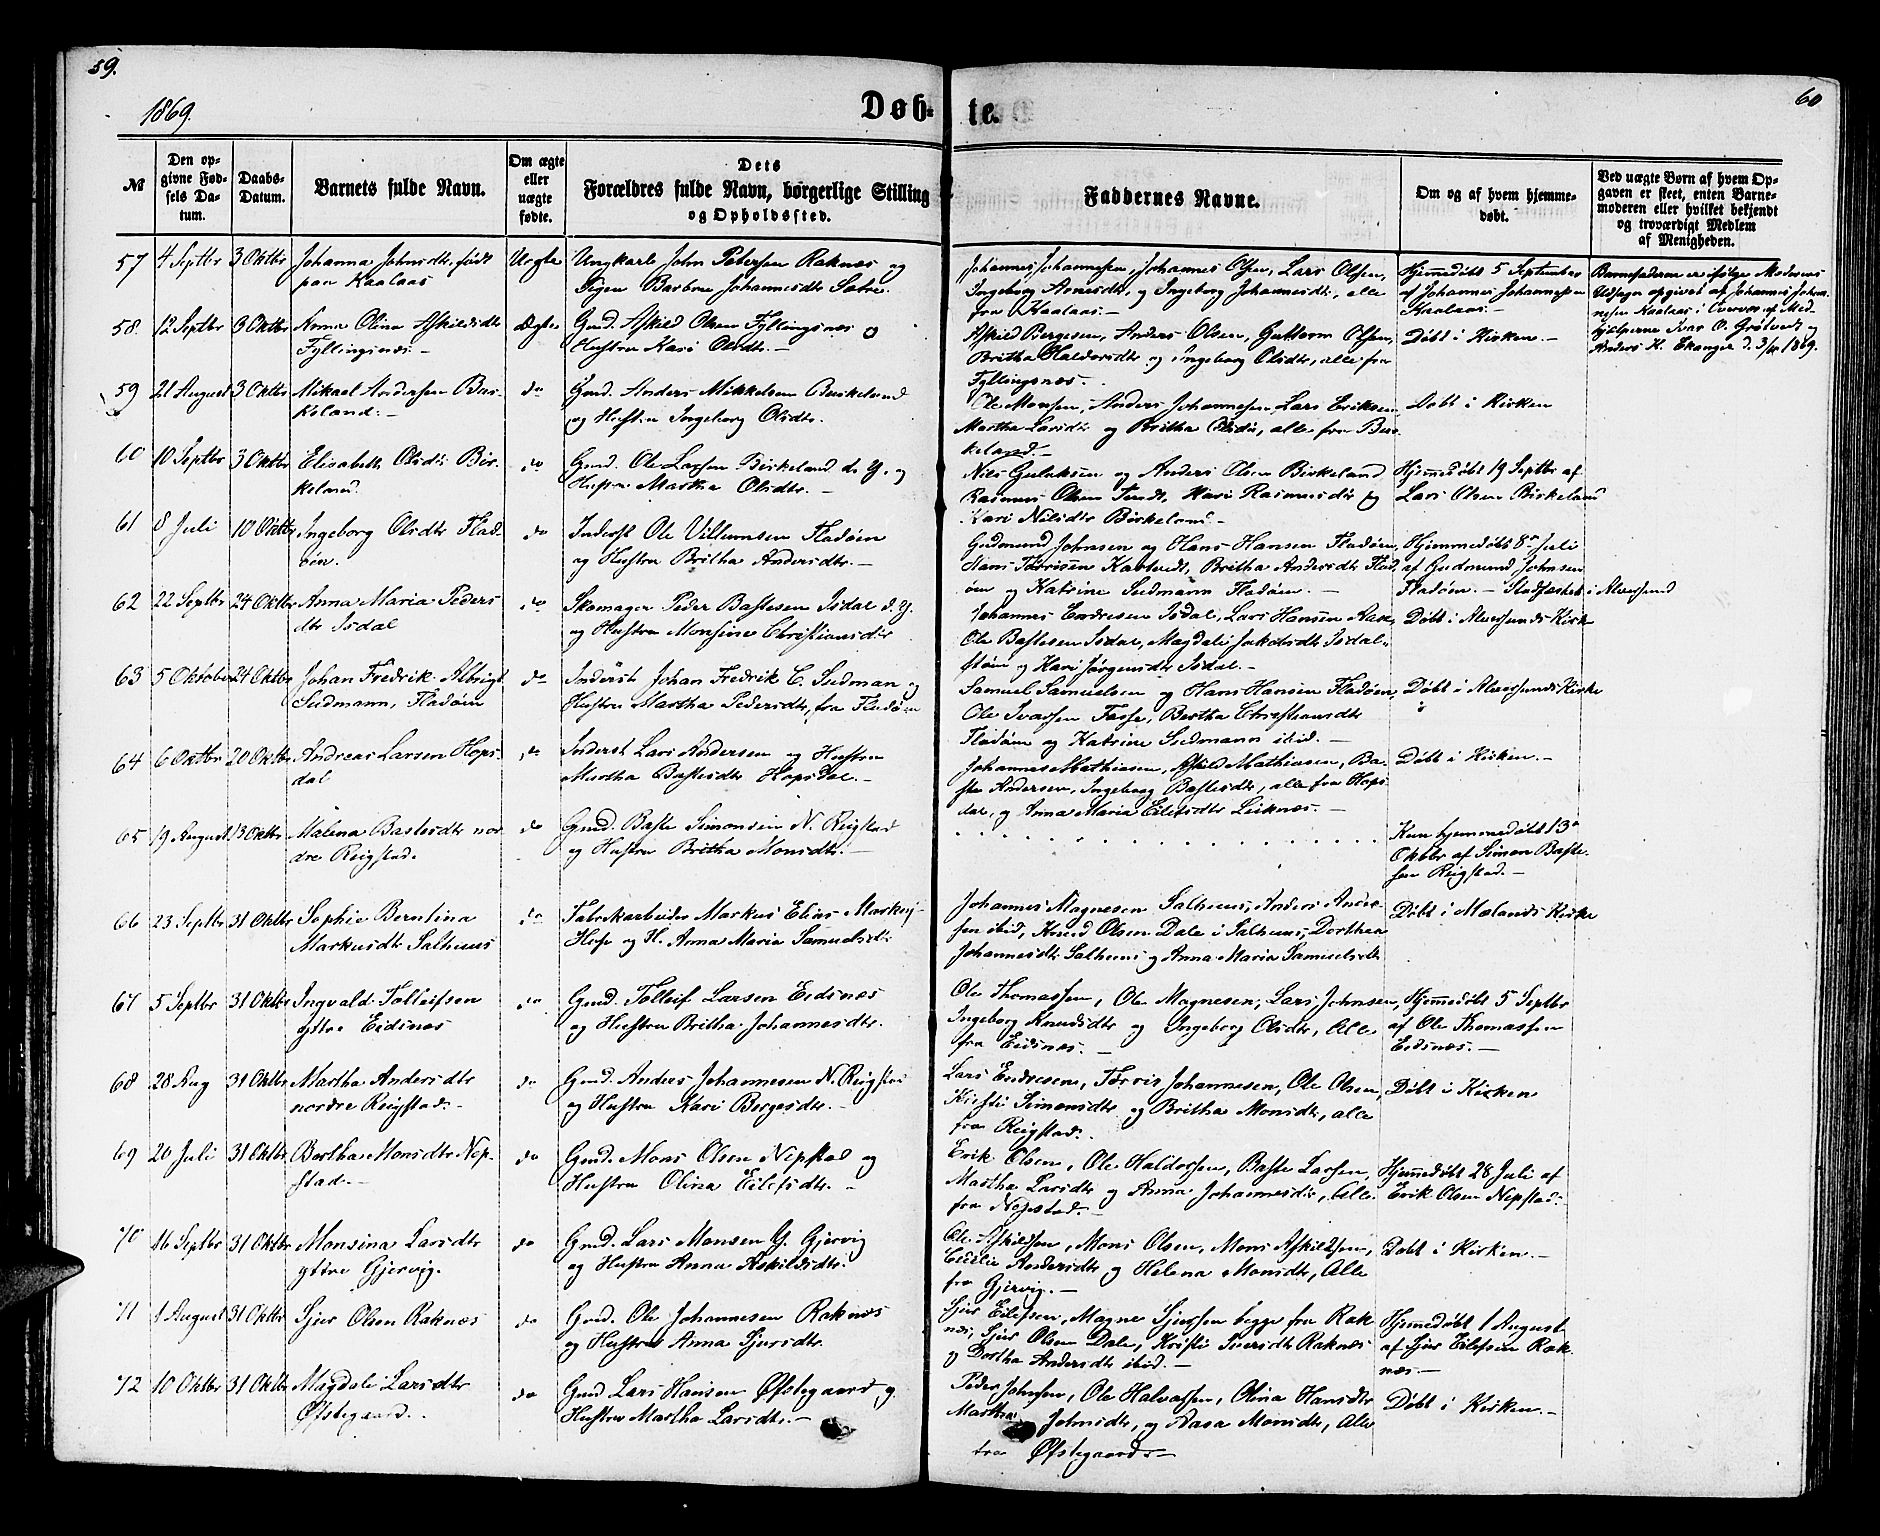 59.
60
1869.
Døb-
te.
№
Den op-
givne Fød-
sels Da-
tum.
Daabs-
Datum.
Barnets fulde Navn.
Om ægte
eller
uægte
fødte.
Dets
Forældres fulde Navn, borgerlige Stilling
og Opholdssted.
Faddernes Navne.
Om og af hvem hjemme-
døbt.
Ved uægte Børn af hvem Op-
gaven er skeet, enten Barne-
moderen eller hvilket bekjendt
og troværdigt Medlem
af Menigheden.
57 4 Septbr 3 Oktbr Johanna Johnsdtr født
paa Kaalaas
Uegte
Ungkarl John Petersen Raknæs og
Pigen Barbra Johannesdtr Sætre.
Johannes Johannessen, Johannes Olsen, Lars Olsen,
Ingeborg Arnesdtr, og Ingeborg Johannesdtr, alle
fra Kaalaas.-
Hjemmedøbt 5 September
af Johannes Johannessen
Kaalaas.-
Barnefaderen er ifølge Moderens
Udsagn opgivet af Johannes Johan-
nessen Kaalaas i Overvær af Med-
hjælperne Ivar O. Grøtvedt og
Anders H. Ekanger d. 3/10 1869.
58. 12 Septbr 3 Oktbr Anna Olina Askildsdtr
Fyllingsnæs.-
Ægte
Gmd. Askild Olsen Fyllingsnæs o
Hustru Kari Olsdtr.-
Askild Bergesen, Anders Olsen, Guttorm Olsen,
Britha Haldorsdtr og Ingeborg Olsdtr, alle fra
Fyllingsnæs.
Døbt i Kirken.-
59 21 August 3 Oktbr Mikael Andersen Bir-
keland.-
do
Gmd. Anders Mikkelsen Birkeland
og Hustru Ingeborg Olsdtr.
Ole Monsen, Anders Johannesen, Lars Eriksen,
Martha Larsdtr og Britha Olsdtr, alle fra Bir-
keland.-
Døbt i Kirken
60 10 Septbr 3 Oktbr Elisabeth Olsdtr Bir-
keland.
do
Gmd. Ole Larsen Birkeland d. y. og
Hustru Martha Olsdtr.-
Nils Gulaksen og Anders Olsen Birkeland
Rasmus Olsen Tveit, Kari Rasmusdtr og
Kari Nilsdtr Birkeland.-
Hjemmedøbt 19 Septbr af
Lars Olsen Birkeland
61 8 Juli 10 Oktbr Ingeborg Olsdtr Flad-
øen.
do
Inderst Ole Villumsen Fladøen
og Hustru Britha Andersdtr.-
Gudmund Johnsen og Hans Hansen Fladøen,
Hans Torrisen Kartvedt, Britha Andersdtr Flad-
øen og Katrine Sudmann Fladøen.-
Hjemmedøbt 8de Juli
af Gudmund Johnsen
Fladøen.- Stadfæstet i Alversund
62 22 Septbr 24 Oktbr Anna Maria Peders
dtr Isdal
do
Skomager Peder Bastesen Isdal d. y.
og Hustru Monsine Christiansdtr
Johannes Endresen Isdal, Lars Hansen
Ole Bastesen Isdal, Magdali Jakobsdtr Isdal-
støen og Kari Jørgensdtr Isdal.-
Døbt i Alversunds Kirke
63 5 Oktober 24 Oktbr Johan Fredrik Albrigt
Sudmann, Fladøen
do
Inderst Johan Fredrik C. Sudman og
Hustru Martha Pedersdtr, fra Fladøen
Samuel Samuelsen og Hans Hansen Fladøen,
Ole Ivarsen Fosse, Bertha Christiansdtr
Fladøen og Katrine Sudmann ibid.-
Døbt i Alversunds Kirke
64 6 Oktbr 20 Oktbr Andreas Larsen Hops-
dal
do
Inderst Lars Andersen og Hustru
Martha Bastesdtr Hopsdal.-
Johannes Mathiesen, Askild Mathiesen, Ba-
ste Andersen, Ingeborg Bastesdtr, alle fra Hops-
dal, og Anna Maria Eilefsdtr Leiknæs.-
Døbt i Kirken.-
65 19 August 13 Oktbr Malena Bastesdtr nor-
dre Reigstad.
do
Gmd. Baste Simonsen N. Reigstad
og Hustru Britha Monsdtr.-
Kun hjemmedøbt 13de
Oktbr af Simon Baste-
sen Reigstad.-
66 23 Septbr 31 Oktbr Sophie Berntina
Markusdtr Salhuus
do
Fabrikarbeider Markus Elias Markus-
og H. Anna Maria Samuelsdtr
Johannes Magnesen Salhuus, Anders Ander-
sen ibid, Knud Olsen Dale i Salhuus, Dorthea
Johannesdtr Salhuus og Anna Maria Samuelsdtr
Døbt i Mælands Kirke
67 5 Septbr 31 Oktbr Ingvald Tolleifsen
yttre Eidsnæs
do
Gmd. Tolleif Larsen Eidsnæs
og Hustru Britha Johannesdtr.
Ole Thomassen, Ole Magnesen, Lars Johnsen,
Ingeborg Knudsdtr og Ingeborg Olsdtr, Alle
fra Eidsnæs.-
Hjemmedøbt 5 Septbr
af Ole Thomassen
Eidsnæs.-
68 28 Aug 31 Oktbr Martha Andersdtr
nordre Reigstad.-
do
Gmd. Anders Johannesen N. Reigstad
og Hustru Kari Bergesdtr.-
Lars Endresen, Torris Johannesen, Ole Olsen,
Kirsti Simonsdtr og Britha Monsdtr, alle
fra Reigstad.
Døbt i Kirken
69 20 Juli 31 Oktbr Bertha Monsdtr Nep-
stad.-
do
Gmd. Mons Olsen Nepstad og
Hustru Olina Eilefsdtr.-
Erik Olsen, Ole Haldorsen, Baste Larsen,
Martha Larsdtr og Anna Johannesdtr, Alle
fra Nepstad.-
Hjemmedøbt 28 Juli af
Erik Olsen Nepstad.
70 16 Septbr 31 Oktbr Monsina Larsdtr
yttre Gjervig.
do
Gmd. Lars Monsen Y. Gjervig
og Hustru Anna Askildsdtr.
Ole Askildsen, Mons Olsen, Mons Askildsen,
Cecilie Andersdtr og Helena Monsdtr, Alle
fra Gjervig.-
Døbt i Kirken.-
71 1 August 31 Oktbr Sjur Olsen Raknæs
do
Gmd. Ole Johannesen Raknæs
og Hustru Anna Sjursdtr.
Sjur Eilefsen, Magne Sjursen begge fra Rak
næs, Sjur Olsen Dale, Kristi Iversdtr Raknæs
og Dortha Andersdtr ibid.-
Hjemmedøbt 1 August
af Sjur Eilefsen Rak-
næs.-
72 10 Oktbr 31 Oktbr Magdali Larsdtr
Øfstegaard.
do
Gmd Lars Hansen Øfstegaard og
Hustru Martha Larsdtr.-
Peder Johnsen, Ole Halvorsen, Olina Hansdtr
Martha Johnsdtr, og Aasa Monsdtr, Alle
fra Øfstegaard.-
Døbt i Kirken.-